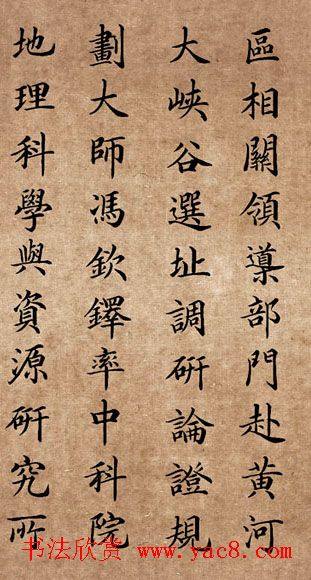 區相關領導部門赴黄河
大峽谷選址調研論證規
劃大師馮欽鐸率中科院
地理科學與資源研究所
书法欣赏 www.yac8.com